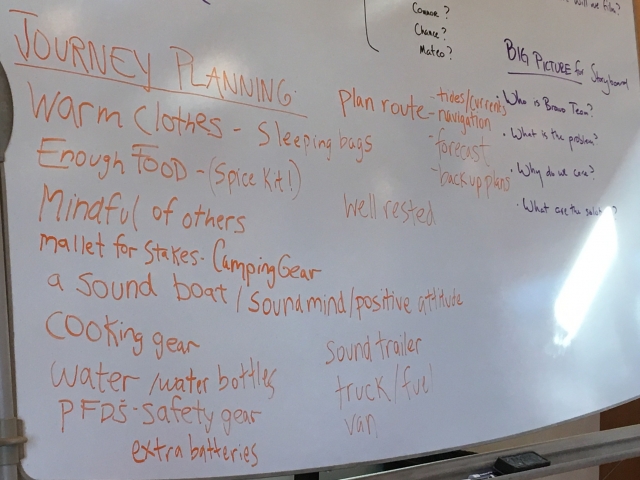 Connor?
Chance?
Mateo?
will we film?
JOURNEY PLANNING:
Warm clothes - Sleeping bags
Enough FOOD - (Spice Kit!)
Mindful of others
mallet for stakes - Camping Gear
a sound boat / sound mind / positive attitude
cooking gear
water / water bottles
PFDs - safety gear
extra batteries
plan route - tides/currents
- navigation
- forecast
- backup plans
well rested
sound trailer
truck / fuel
van
BIG PICTURE for Storyboard
• Who is Bravo Team?
• What is the problem?
• Why do we care?
• What are the